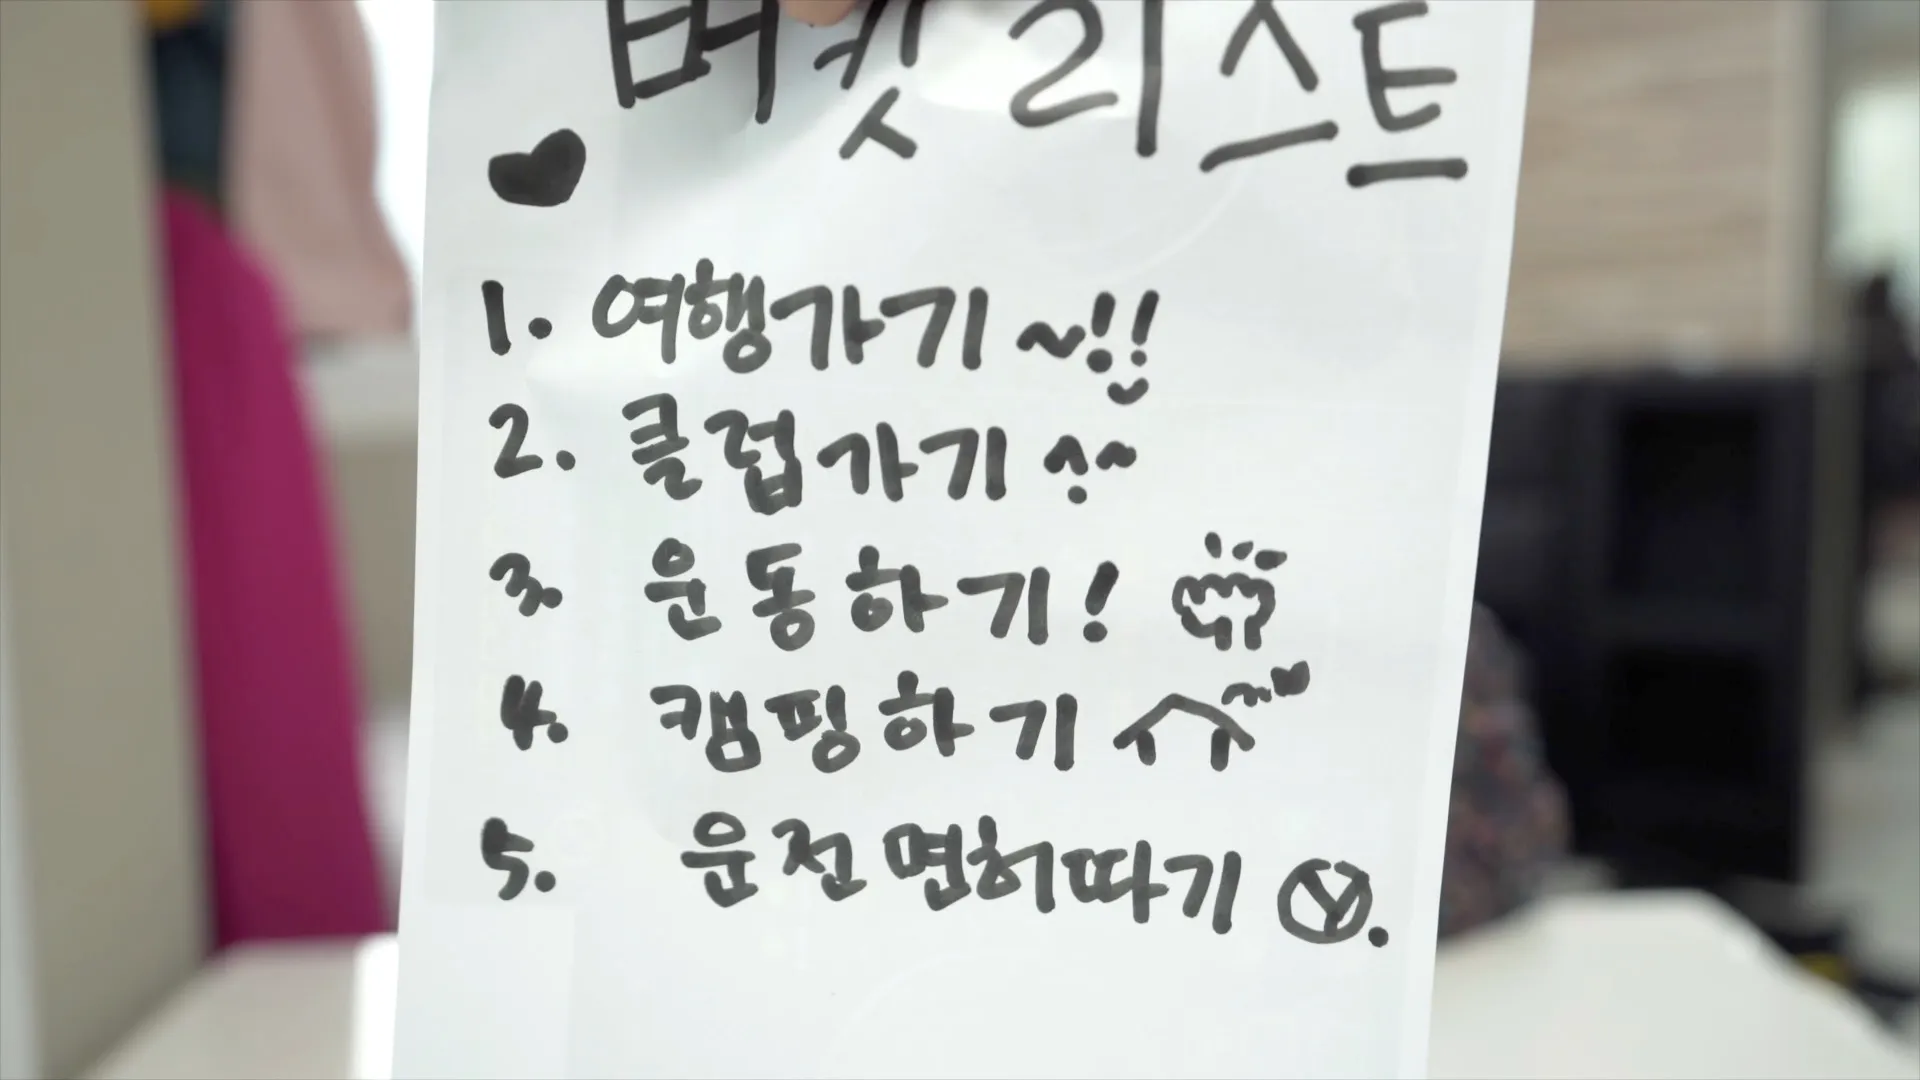 버킷 리스트
1. 여행가기 ~!!
2. 클럽가기 ^^
3. 운동하기!
4. 캠핑하기
5. 운전면허따기